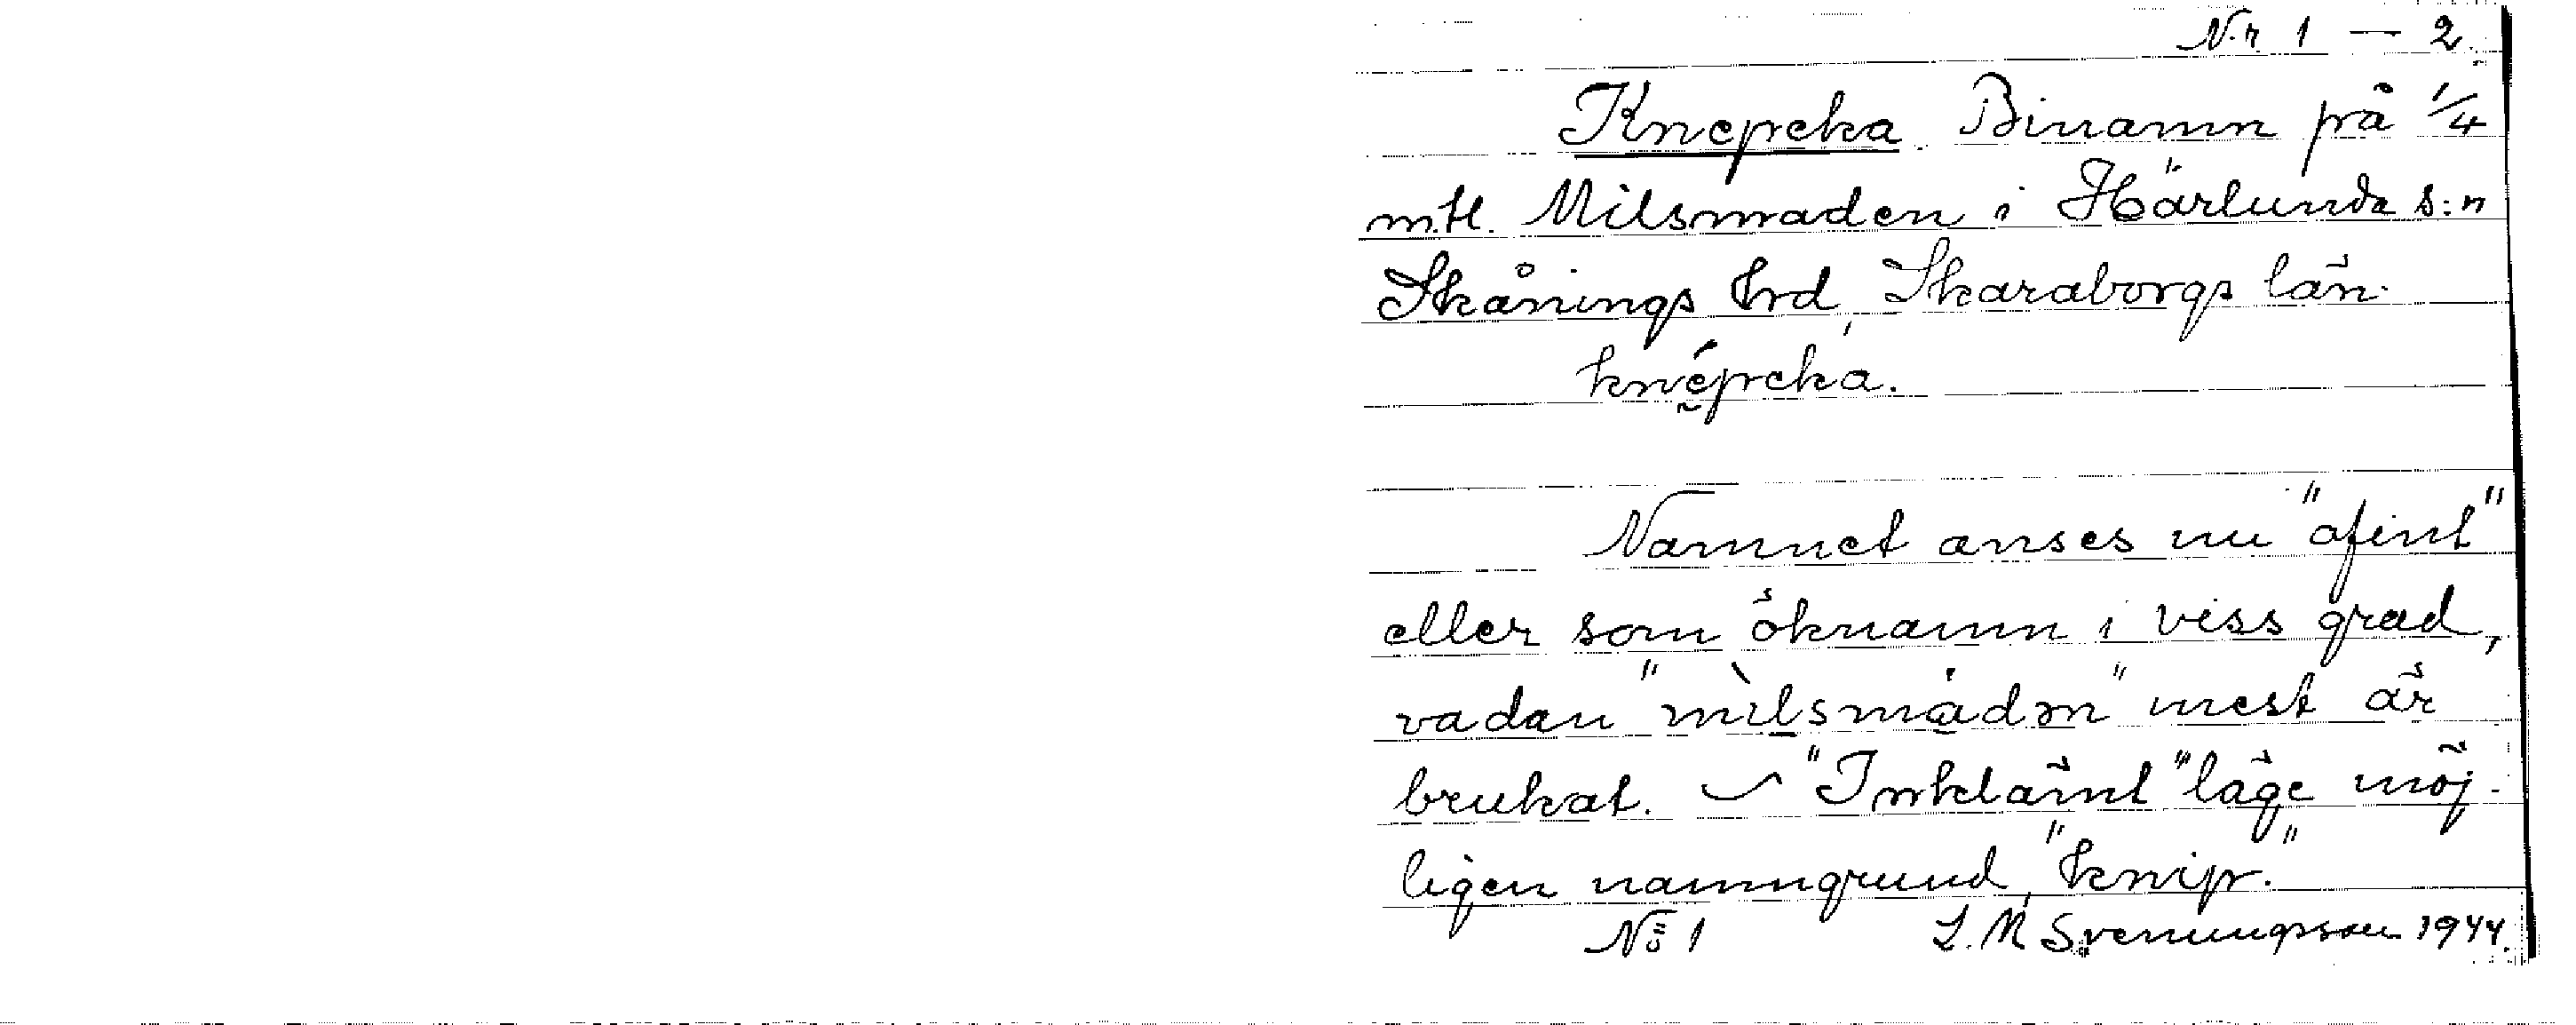 Nr 1 — 2.
Knepeka. Binamn på 1/4
mtl. Milsmaden i Härlunda s:n
Skånings hrd, Skaraborgs län.
knépeka.
Namnet anses nu "ofint"
eller som öknamn i viss grad,
vadan "mìlsmadən" mest är
brukat. — "Inklämt" läge möj-
ligen namngrund, "knip."
No 1 L. M. Svenungsson 1944.